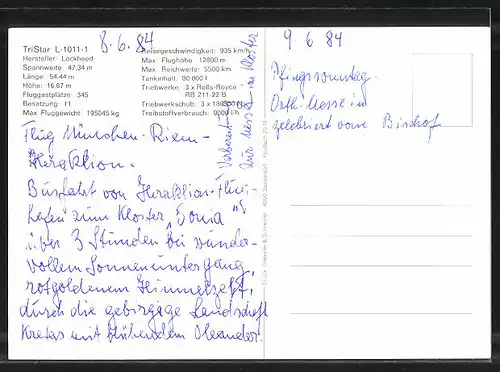 8.6.84
TriStar L-1011-1
Hersteller: Lockheed
Spannweite: 47,34 m
Länge: 54,44 m
Höhe: 16,87 m
Fluggastplätze: 345
Besatzung: 11
Max. Fluggewicht: 195045 kg
Reisegeschwindigkeit: 935 km/h
Max. Flughöhe: 12800 m
Max. Reichweite: 5500 km
Tankinhalt: 90 000 l
Triebwerke: 3 x Rolls-Royce
RB 211-22 B
Triebwerkschub: 3 x
Treibstoffverbrauch: 9000 l/h
Flug München-Riem-
Heraklion.
Busfahrt von Heraklion-Flug-
hafen zum Kloster "Gonia"
über 3 Stunden bei wunder-
vollem Sonnenuntergang,
rotgoldenem Himmelszelt,
durch die gebirgige Landschaft
Kretas mit blühendem Oleander.
zur Messe im Kloster
9.6.84
Pfingstsonntag-
Orth. Messe in
zelebriert vom Bischof